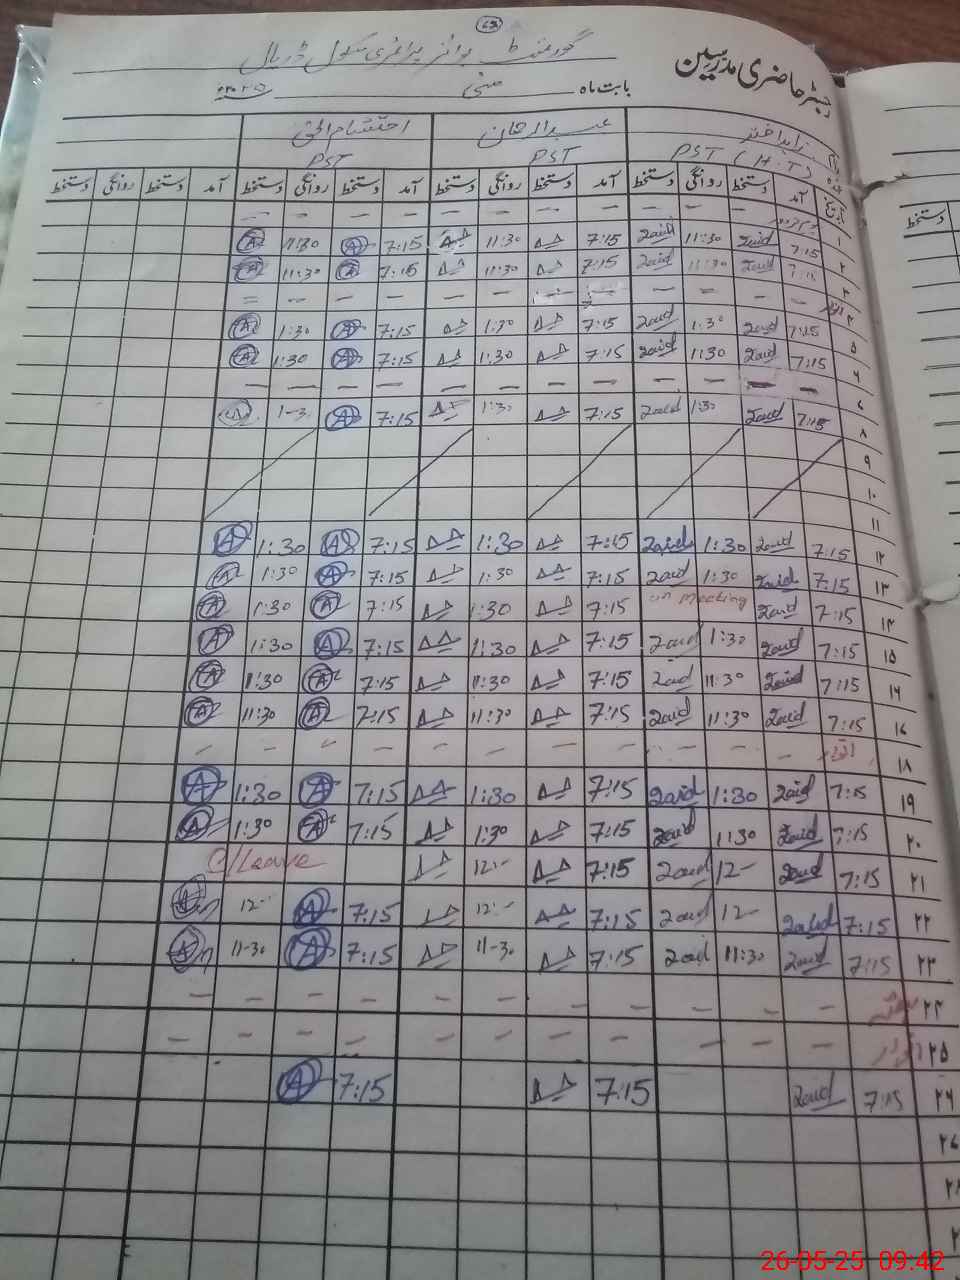 ۶۹
رجسٹر حاضری مدرسین
گورنمنٹ بوائز پرائمری سکول ڈریال
بابت ماہ مئی
زاہد اختر عبدالرحمان احتشام الحق
PST (H.T) PST PST
تاریخ آمد دستخط روانگی دستخط آمد دستخط روانگی دستخط آمد دستخط روانگی دستخط آمد دستخط روانگی دستخط
۱ — — — — — — — — — —
۲ 7:15 Zaid 11:30 Zaid 7:15 11:30 7:15 A 11:30 A
۳ 7:15 Zaid 11:30 Zaid 7:15 11:30 7:15 A 11:30 A
۴ اتوار — — — — — — — — — —
۵ 7:15 Zaid 1:30 Zaid 7:15 1:30 7:15 A 1:30 A
۶ 7:15 Zaid 1:30 Zaid 7:15 1:30 7:15 A 1:30 A
— — — — — — — — — — —
۸ 7:15 Zaid 1:30 Zaid 7:15 1:30 7:15 A 1-30 A
۹
۱۰
۱۱
۱۲ 7:15 Zaid 1:30 Zaid 7:15 1:30 7:15 A 1:30 A
۱۳ 7:15 Zaid 1:30 Zaid 7:15 1:30 7:15 A 1:30 A
۱۴ 7:15 Zaid on meeting 7:15 1:30 7:15 A 1:30 A
۱۵ 7:15 Zaid 1:30 Zaid 7:15 1:30 7:15 A 1:30 A
۱۶ 7:15 Zaid 11:30 Zaid 7:15 11:30 7:15 A 11:30 A
۱۷ 7:15 Zaid 11:30 Zaid 7:15 11:30 7:15 A 11:30 A
۱۸ اتوار — — — — — — — — — —
۱۹ 7:15 Zaid 1:30 Zaid 7:15 1:30 7:15 A 1:30 A
۲۰ 7:15 Zaid 11:30 Zaid 7:15 1:30 7:15 A 1:30 A
۲۱ 7:15 Zaid 12- Zaid 7:15 12:- C/Leave
۲۲ 7:15 Zaid 12- Zaid 7:15 12:- 7:15 A 12- A
۲۳ 7:15 Zaid 11:30 Zaid 7:15 11-30 7:15 A 11-30 A
۲۴ ہفتہ — — — — — — — — — —
۲۵ اتوار — — — — — — — — — —
۲۶ 7:15 Zaid 7:15 7:15 A
۲۷
۲۸
26-05-25 09:42